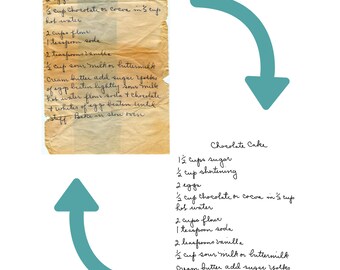 ½ cup Chocolate or Cocoa in ½ cup
hot water
2 cups flour
1 teaspoon soda
2 teaspoons vanilla
½ cup sour milk or buttermilk
Cream butter add sugar yolks
of eggs beaten lightly sour milk
hot water flour soda & chocolate
& whites of eggs beaten until
stiff. Bake in slow oven
Chocolate Cake
1½ cups sugar
½ cup shortening
2 eggs
½ cup chocolate or cocoa in ½ cup
hot water
2 cups flour
1 teaspoon soda
2 teaspoons vanilla
½ cup sour milk or buttermilk
Cream butter add sugar yolks